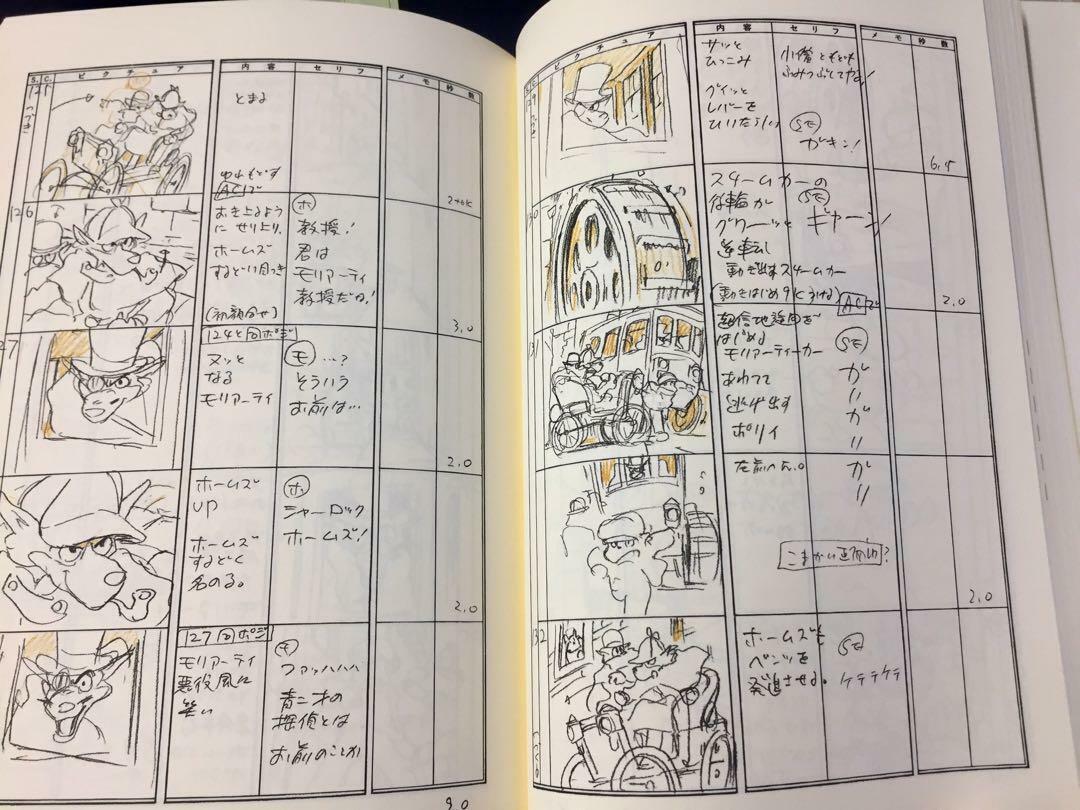 S. C. ピクチュア 内容 セリフ メモ 秒数
125
つづき
とまる
ACで
2+0K
126
おき上るよう
にせり上り、
ホームズ
するどい目つき
ホ
教授！
君は
モリアーティ
教授だな！
3.0
27
124と同ポジ
ヌッと
なる
モリアーティ
モ …？
そういう
お前は…
2.0
ホームズ
UP
ホームズ
するどく
名のる。
ホ
シャーロック
ホームズ！
2.0
127同ポジ
モリアーティ
悪役風に
笑い
モ
ファッハハハ
青二才の
探偵とは
お前のことか
9.0
S. C. ピクチュア 内容 セリフ メモ 秒数
129
つづき
サッと
ひっこみ
グイッと
レバーを
小僧ともども
ふみつぶしてやる！
SE
ガキン！
6.5
130
スチームカーの
グワーッと
逆転し
動き出すスチームカー
SE
ギャーン
ACで
2.0
131
超信地旋回を
はじめる
モリアーティカー
あわてて
逃げ出す
ポリイ
SE
ガ
〃
ガ
〃
ガ
〃
2.0
132
ホームズも
ベンツを
発進させる。
SE
ケテテケテ